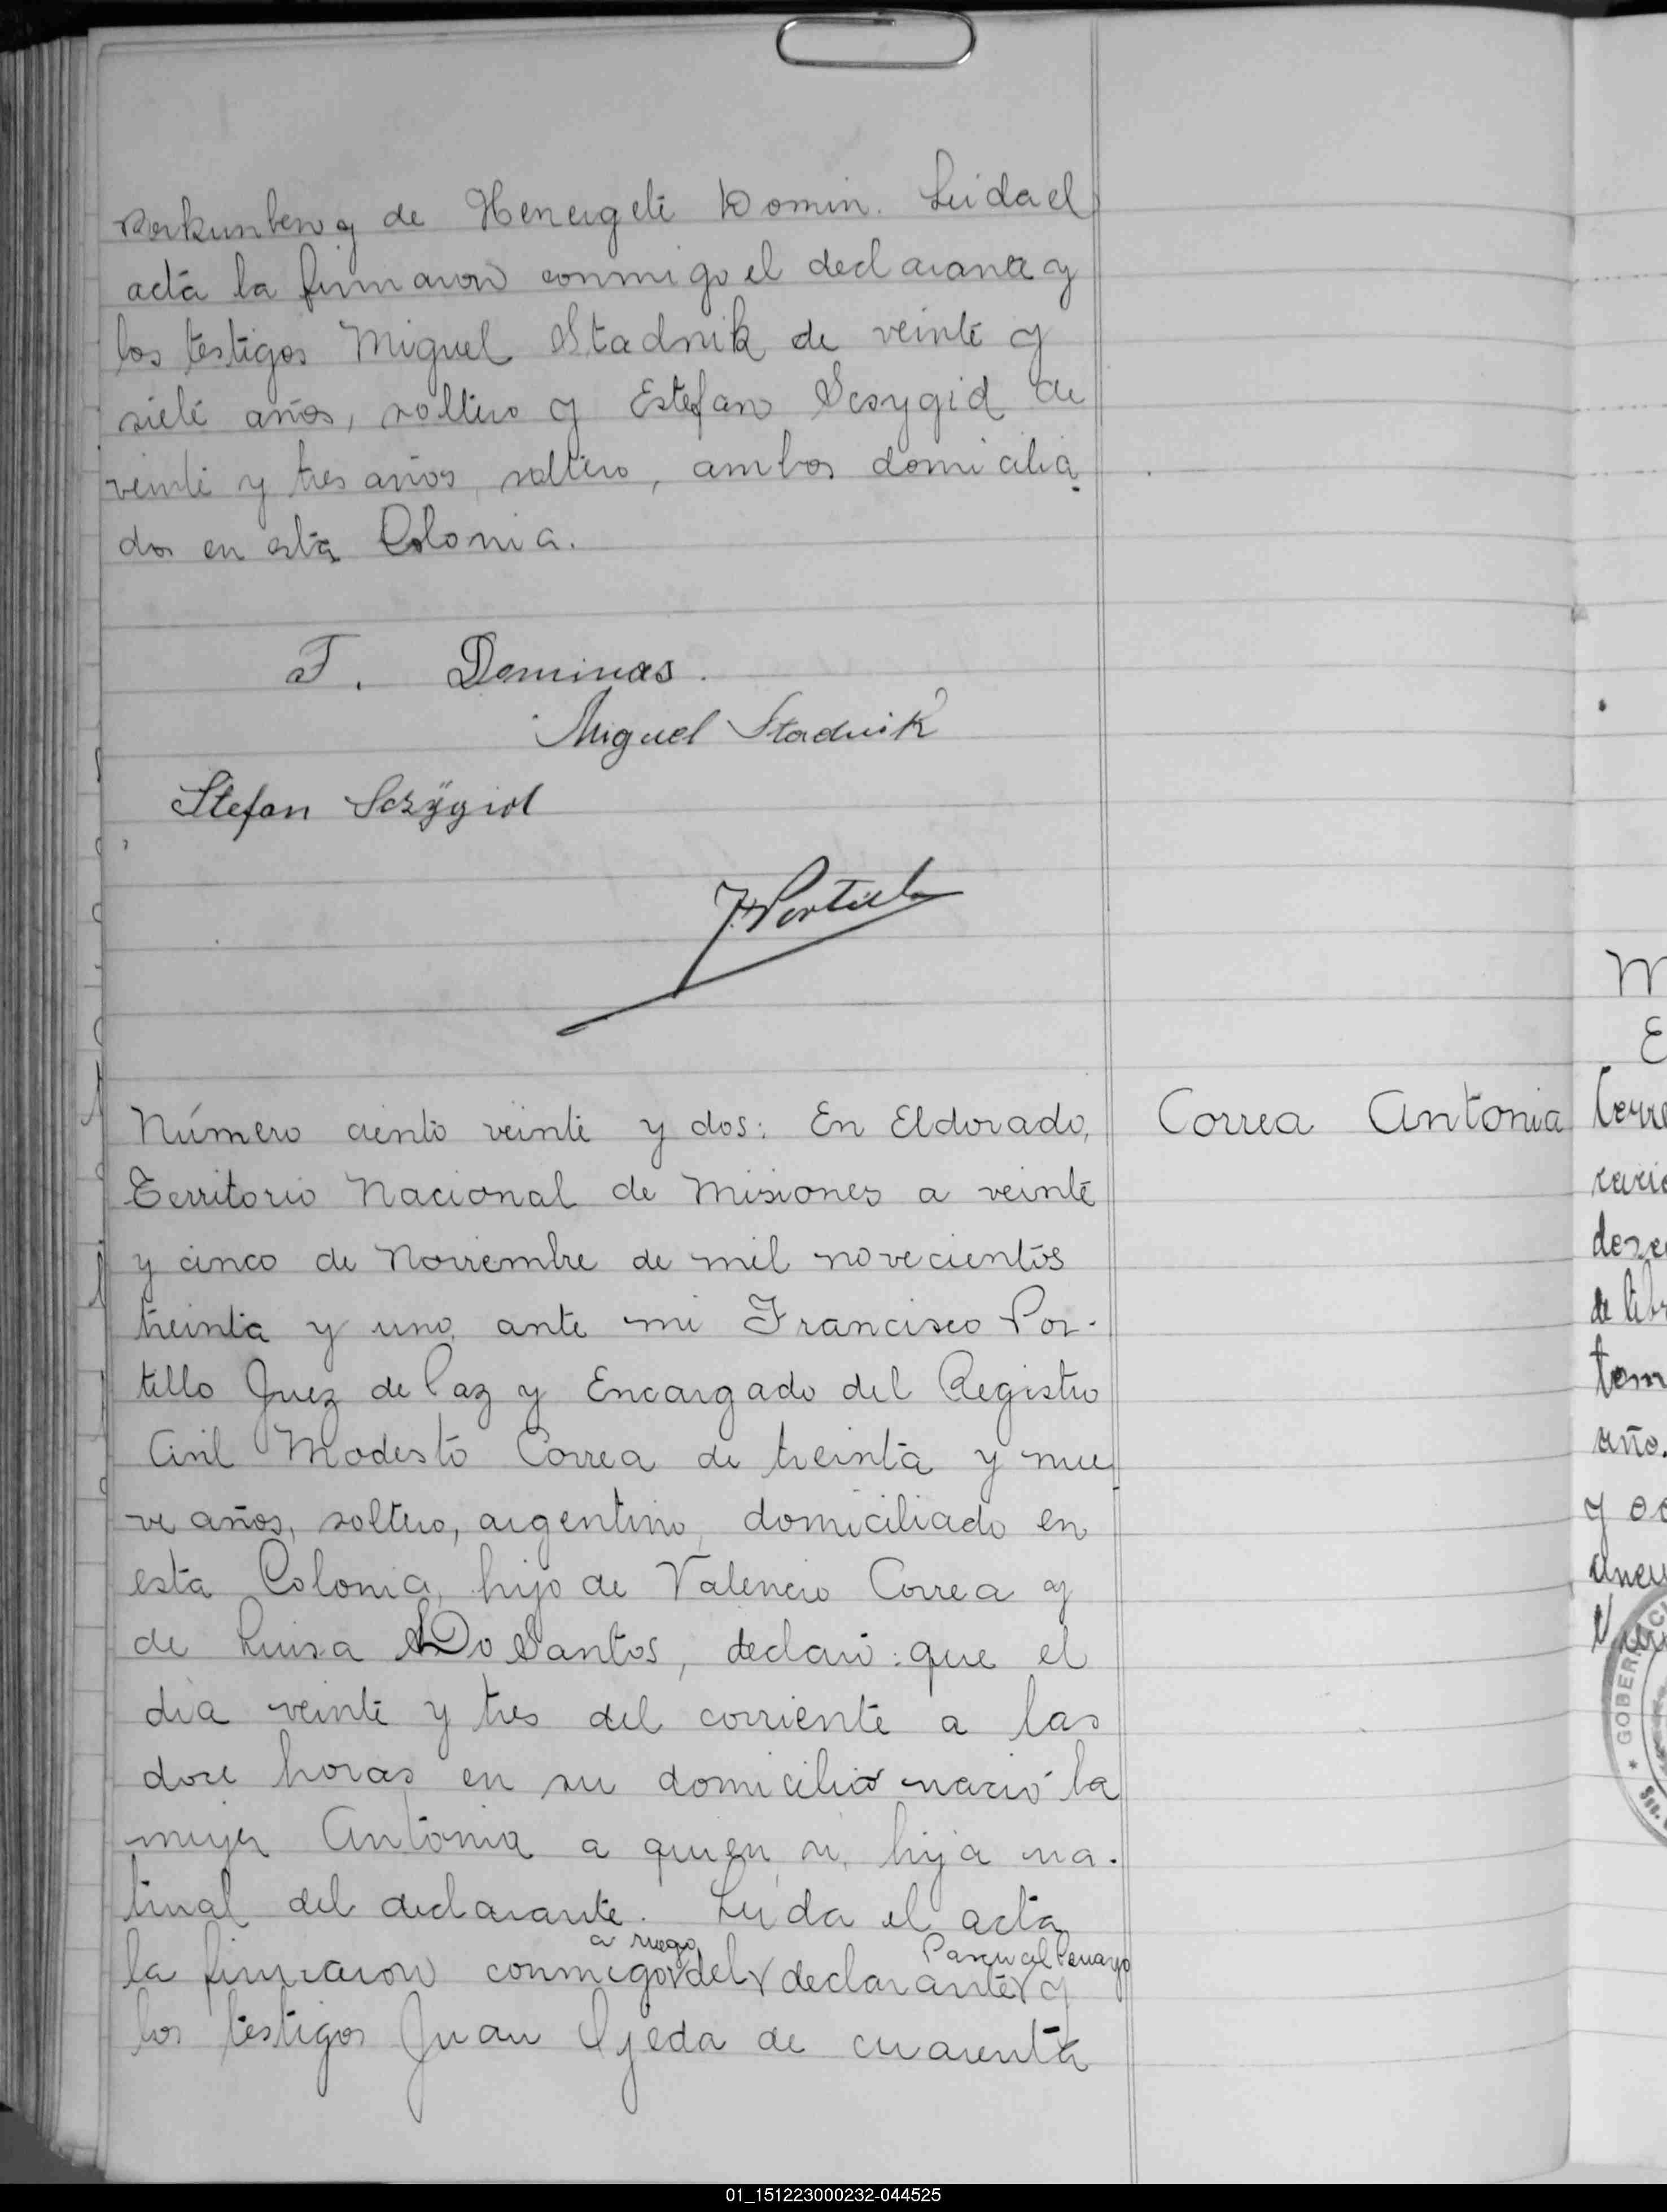 Perkunberg de Henergeti Domin. Leida el
acta la firmaron conmigo el declarante y
los testigos Miguel Stadnik de veinte y
siete años, soltero y Estefan Scsygid de
veinte y tres años, soltero, ambos domicilia
dos en esta Colonia.
T. Dominas.
Miguel Stadnik
Stefan Scszygiol
F. Portillo
Número ciento veinte y dos: En Eldorado,
Territorio Nacional de Misiones a veinte
y cinco de Noviembre de mil novecientos
treinta y uno, ante mi Francisco Por-
tillo Juez de Paz y Encargado del Registro
Civil Modesto Correa de treinta y nue
ve años, soltero, argentino, domiciliado en
esta Colonia, hijo de Valencio Correa y
de Luisa Do Santos, declaró: que el
día veinte y tres del corriente a las
doce horas en su domicilio nació la
mujer Antonia a quien vi, hija na-
tural del declarante. Leida el acta
a ruego Pascual
la firmaron conmigo del declarante y
los testigos Juan Ojeda de cuarenta
Correa Antonia
M
E
Corre
de libr
tom
año.
GOBERNACI
01_151223000232-044525